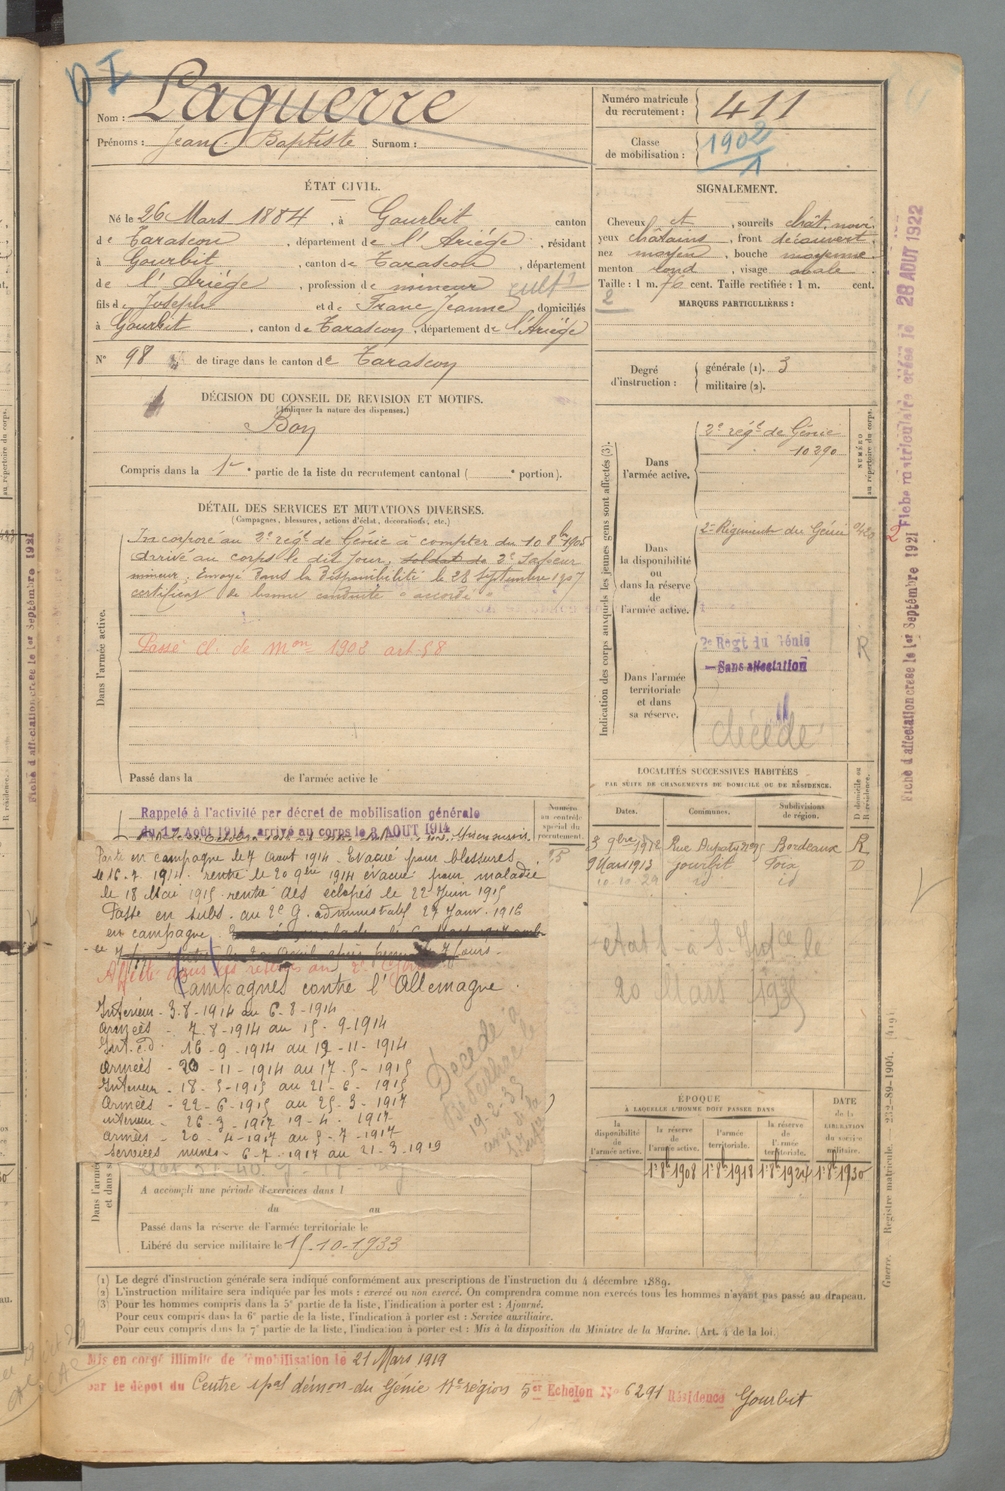 DI
Nom : Laguerre
Prénoms : Jean Baptiste Surnom :
Numéro matricule du recrutement : 411
Classe de mobilisation : 1902
1
ÉTAT CIVIL.
Né le 26 Mars 1884, à Gourbit canton
de Tarascon, département de l'Ariège, résidant
à Gourbit, canton de Tarascon, département
de l'Ariège, profession de mineur cult
fils de Joseph et de Franc Jeanne, domiciliés
à Gourbit, canton de Tarascon, département de l'Ariège
N° 98 de tirage dans le canton de Tarascon
DÉCISION DU CONSEIL DE REVISION ET MOTIFS.
(Indiquer la nature des dispenses.)
Bon
Compris dans la 1re partie de la liste du recrutement cantonal ( e portion).
SIGNALEMENT.
Cheveux et, sourcils chât. noir
yeux châtains, front découvert
nez moyen, bouche moyenne
menton rond, visage ovale
Taille : 1 m. 76 cent. Taille rectifiée : 1 m. cent.
2
MARQUES PARTICULIÈRES :
Degré d'instruction : générale (1). 3
militaire (2).
DÉTAIL DES SERVICES ET MUTATIONS DIVERSES.
(Campagnes, blessures, actions d'éclat, décorations, etc.)
Dans l'armée active.
Incorporé au 2e régt de Génie à compter du 10 8bre 1905
Arrivé au corps le dit jour, soldat de 2e Sapeur
mineur. Envoyé dans la disponibilité le 28 Septembre 1907
certificat de bonne conduite "accordé"
Passé cl. de mon 1902 art 58
Passé dans la de l'armée active le
Indication des corps auxquels les jeunes gens sont affectés (3).
NUMÉRO au répertoire du corps.
Dans l'armée active.
2e régt de Génie
10290
Dans la disponibilité ou dans la réserve de l'armée active.
2e Régiment du Génie
Dans l'armée territoriale et dans sa réserve.
2e Regt du Génie
Sans affectation
R
décédé
Rappelé à l'activité par décret de mobilisation générale
du 1er Août 1914, arrivé au corps le 3 AOUT 1914
Parti en campagne le 7 Aout 1914. Evacué pour blessures
le 16-9 1914. rentré le 20 9bre 1914 évacué pour maladie
le 18 Mai 1915. rentré des éclopés le 22 Juin 1915
Passé en subs. au 2e G. administratif 27 Janv. 1916
en campagne
Affecté dans les réserves au 2e Génie
Campagnes contre l'Allemagne.
Intérieur - 3-8-1914 au 6-8-1914
Armées - 7.8-1914 au 15-9-1914
Int. C.D. 16-9-1914 au 19-11-1914
Armées - 20-11-1914 au 17-5-1915
Intérieur - 18-5-1915 au 21-6-1915
Armées - 22-6-1915 au 25-3-1917
Intérieur - 26-3-1917 19-4-1917
Armées - 20-4-1917 au 5-7-1917
Services mines - 6-7-1917 au 21-3-1919
Décédé à
19-2-35
avis de la
Numéro au contrôle spécial du recrutement.
LOCALITÉS SUCCESSIVES HABITÉES
PAR SUITE DE CHANGEMENTS DE DOMICILE OU DE RÉSIDENCE.
Dates. Communes. Subdivisions de région. D domicile ou R résidence.
3 9bre 1912 Rue Dupaty n° 95 Bordeaux R
9 Mars 1913 Gourbit Foix D
10.10.29 id id
20 Mars 1935
ÉPOQUE
À LAQUELLE L'HOMME DOIT PASSER DANS
la disponibilité de l'armée active. la réserve de l'armée active. l'armée territoriale. la réserve de l'armée territoriale. DATE de la LIBÉRATION du service militaire.
1er 8bre 1908 1er 8bre 1918 1er 8bre 1924 1er 8bre 1930
A accompli une période d'exercices dans l
du au
Passé dans la réserve de l'armée territoriale le
Libéré du service militaire le 15-10-1933
(1) Le degré d'instruction générale sera indiqué conformément aux prescriptions de l'instruction du 4 décembre 1889.
(2) L'instruction militaire sera indiquée par les mots : exercé ou non exercé. On comprendra comme non exercés tous les hommes n'ayant pas passé au drapeau.
(3) Pour les hommes compris dans la 5e partie de la liste, l'indication à porter est : Ajourné.
Pour ceux compris dans la 6e partie de la liste, l'indication à porter est : Service auxiliaire.
Pour ceux compris dans la 7e partie de la liste, l'indication à porter est : Mis à la disposition du Ministre de la Marine. (Art. 4 de la loi.)
Mis en congé illimité de démobilisation le 21 Mars 1919
par le dépot du Centre spal démon du Génie 17e région 5er Echelon N° 6291 Résidence Gourbit
Fiche d'affectation créée le 1er Septembre 1921
Fiche d'affectation créée le 1er Septembre 1921 Fiche matriculaire créée le 28 AOUT 1922
Guerre. — Registre matricule. — 232-89-1904. [419]